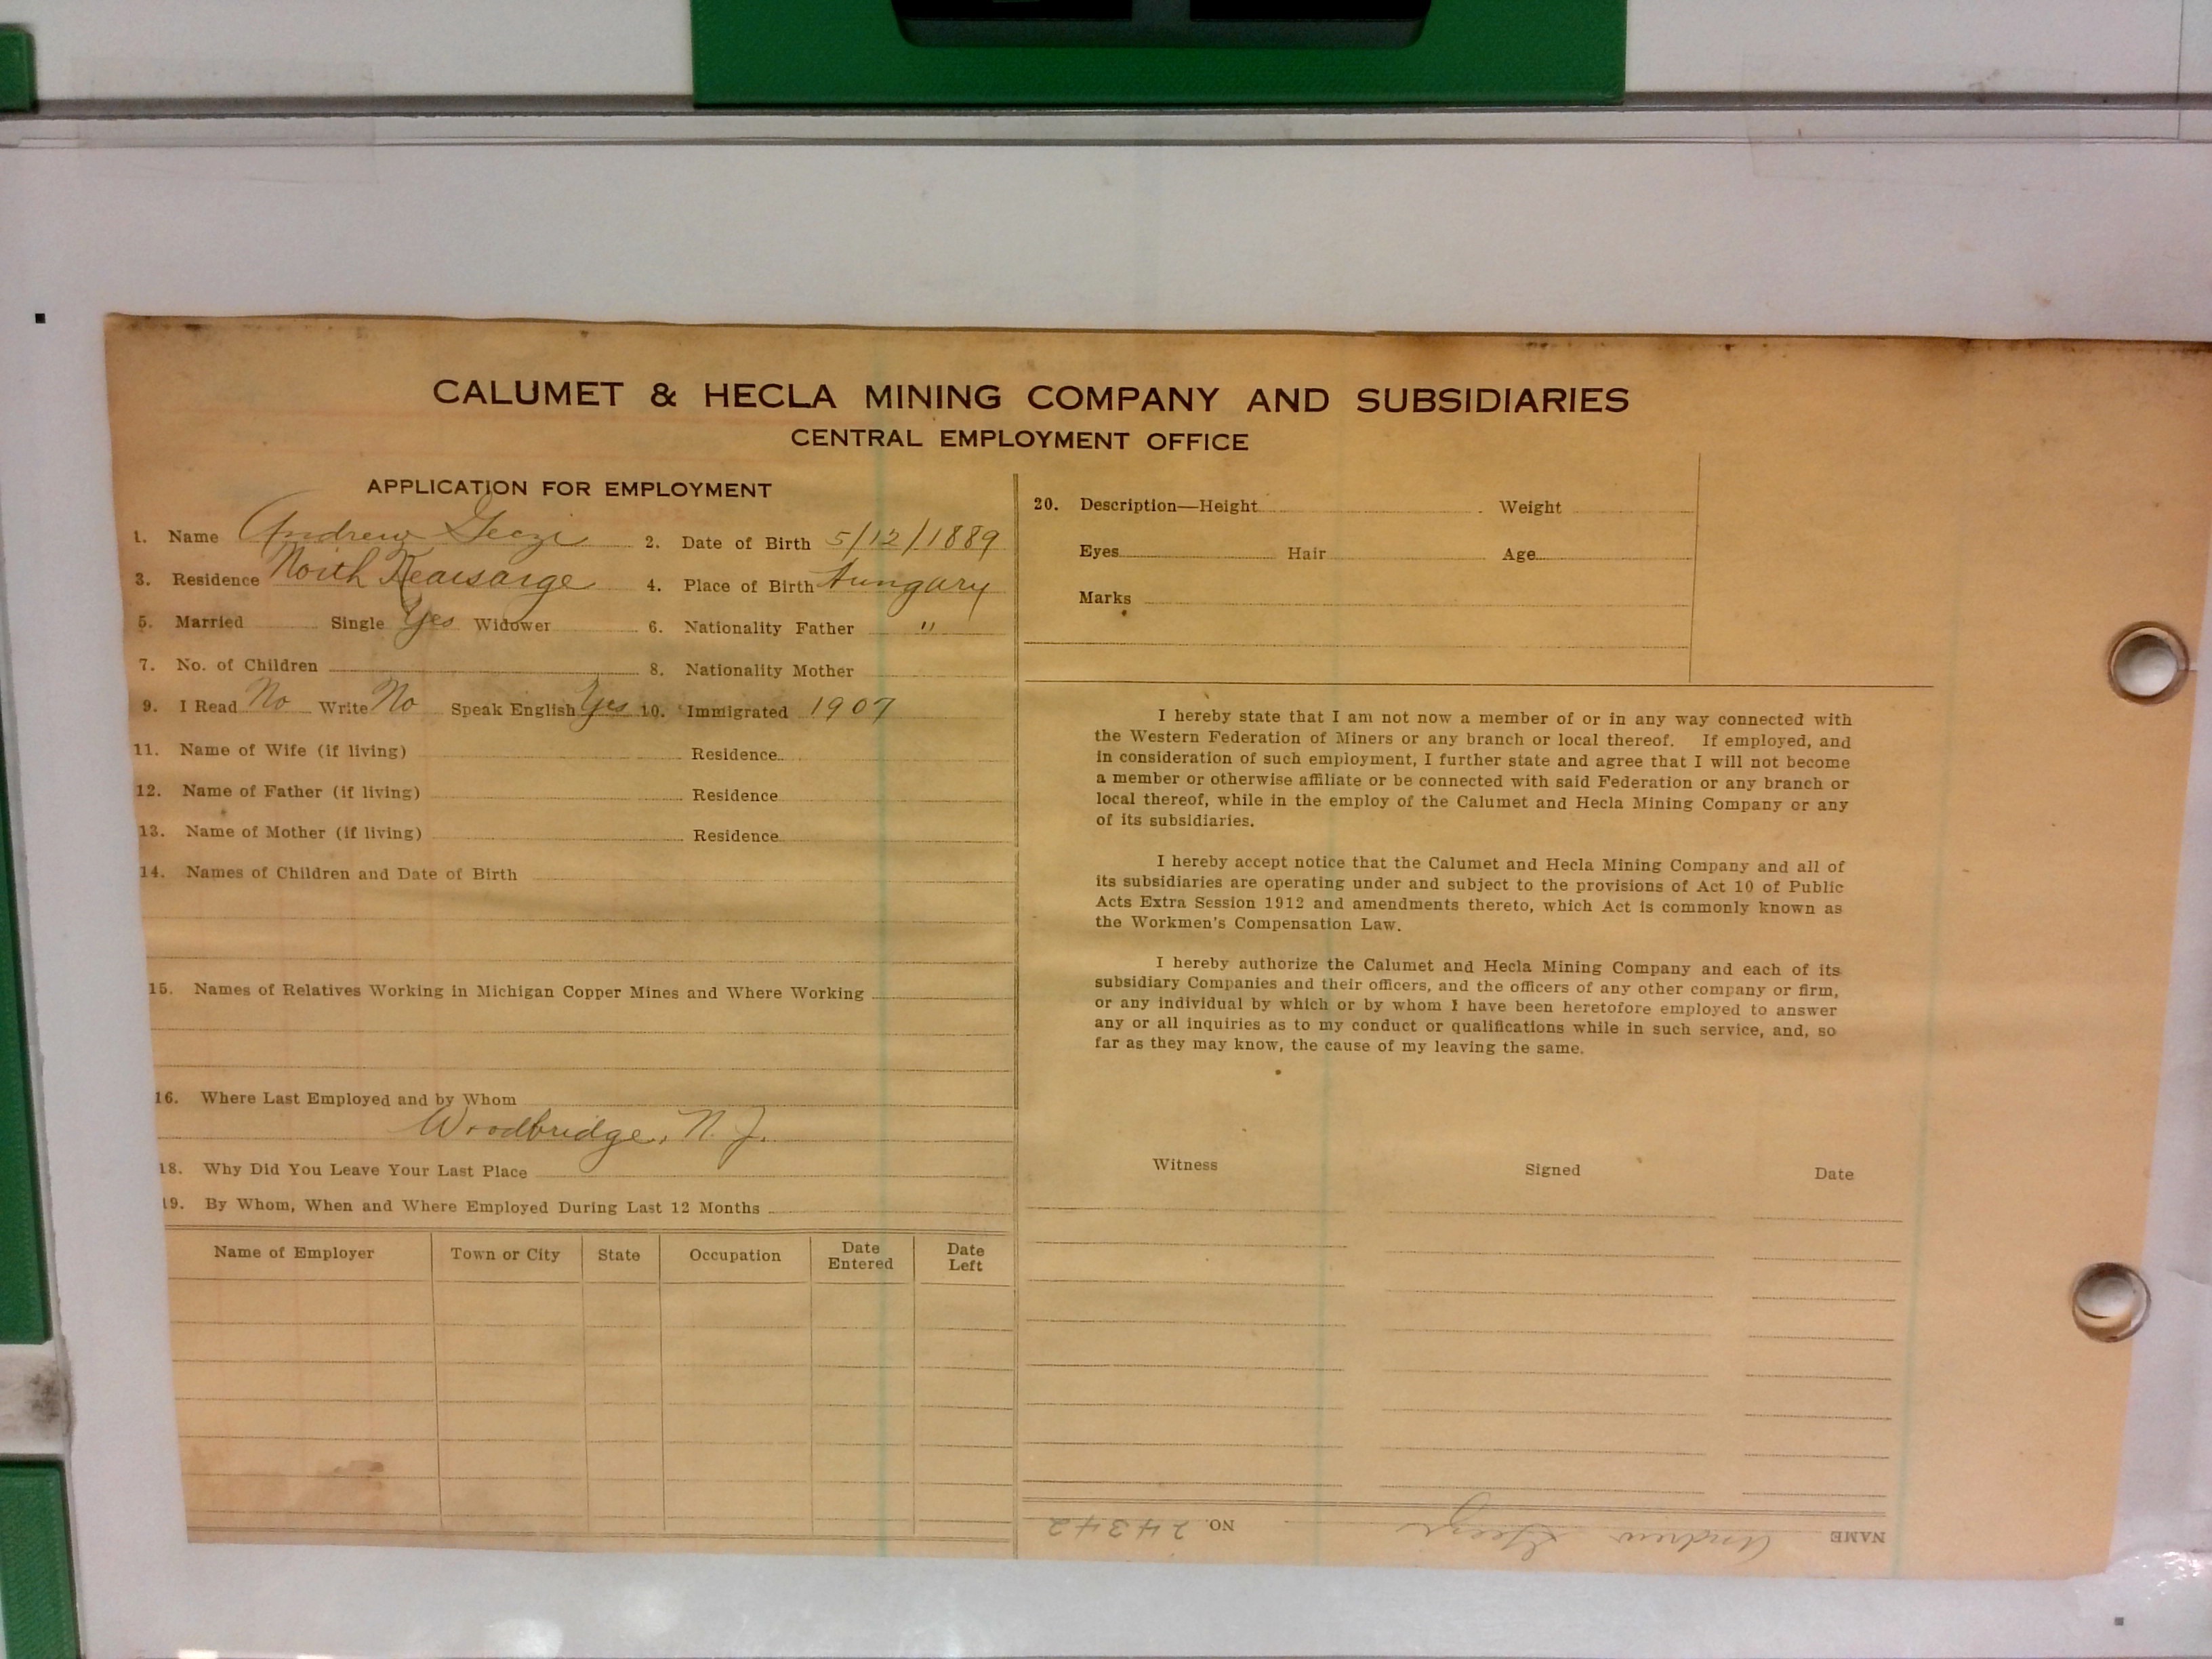 CALUMET & HECLA MINING COMPANY AND SUBSIDIARIES
CENTRAL EMPLOYMENT OFFICE
APPLICATION FOR EMPLOYMENT
1. Name Andrew Geczi 2. Date of Birth 5/12/1889
3. Residence North Kearsarge 4. Place of Birth Hungary
5. Married Single Yes Widower 6. Nationality Father "
7. No. of Children 8. Nationality Mother
9. I Read No Write No Speak English Yes 10. Immigrated 1907
11. Name of Wife (if living) Residence
12. Name of Father (if living) Residence
13. Name of Mother (if living) Residence
14. Names of Children and Date of Birth
15. Names of Relatives Working in Michigan Copper Mines and Where Working
16. Where Last Employed and by Whom
Woodbridge, N. J.
18. Why Did You Leave Your Last Place
19. By Whom, When and Where Employed During Last 12 Months
Name of Employer Town or City State Occupation Date Entered Date Left
20. Description—Height Weight
Eyes Hair Age
Marks
I hereby state that I am not now a member of or in any way connected with
the Western Federation of Miners or any branch or local thereof. If employed, and
in consideration of such employment, I further state and agree that I will not become
a member or otherwise affiliate or be connected with said Federation or any branch or
local thereof, while in the employ of the Calumet and Hecla Mining Company or any
of its subsidiaries.
I hereby accept notice that the Calumet and Hecla Mining Company and all of
its subsidiaries are operating under and subject to the provisions of Act 10 of Public
Acts Extra Session 1912 and amendments thereto, which Act is commonly known as
the Workmen's Compensation Law.
I hereby authorize the Calumet and Hecla Mining Company and each of its
subsidiary Companies and their officers, and the officers of any other company or firm,
or any individual by which or by whom I have been heretofore employed to answer
any or all inquiries as to my conduct or qualifications while in such service, and, so
far as they may know, the cause of my leaving the same.
Witness Signed Date
NAME Andrew Geczi NO. 24342